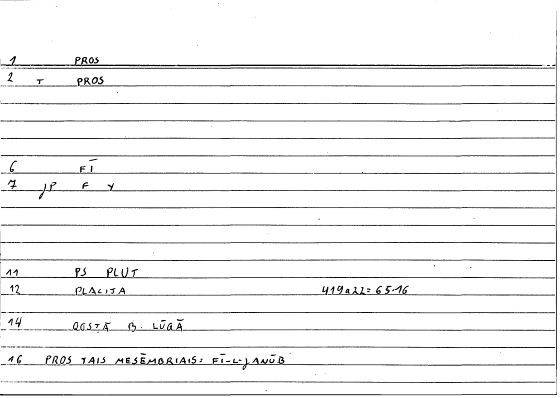 1 PROS
2 T PROS
6 FĪ
7 jP F Y
11 PS PLUT
12 PLACITA 419a22=65.16
14 QOSṬĀ B. LŪQĀ
16 PROS TAIS MESĒMBRIAIS: FĪ-L-JANŪB